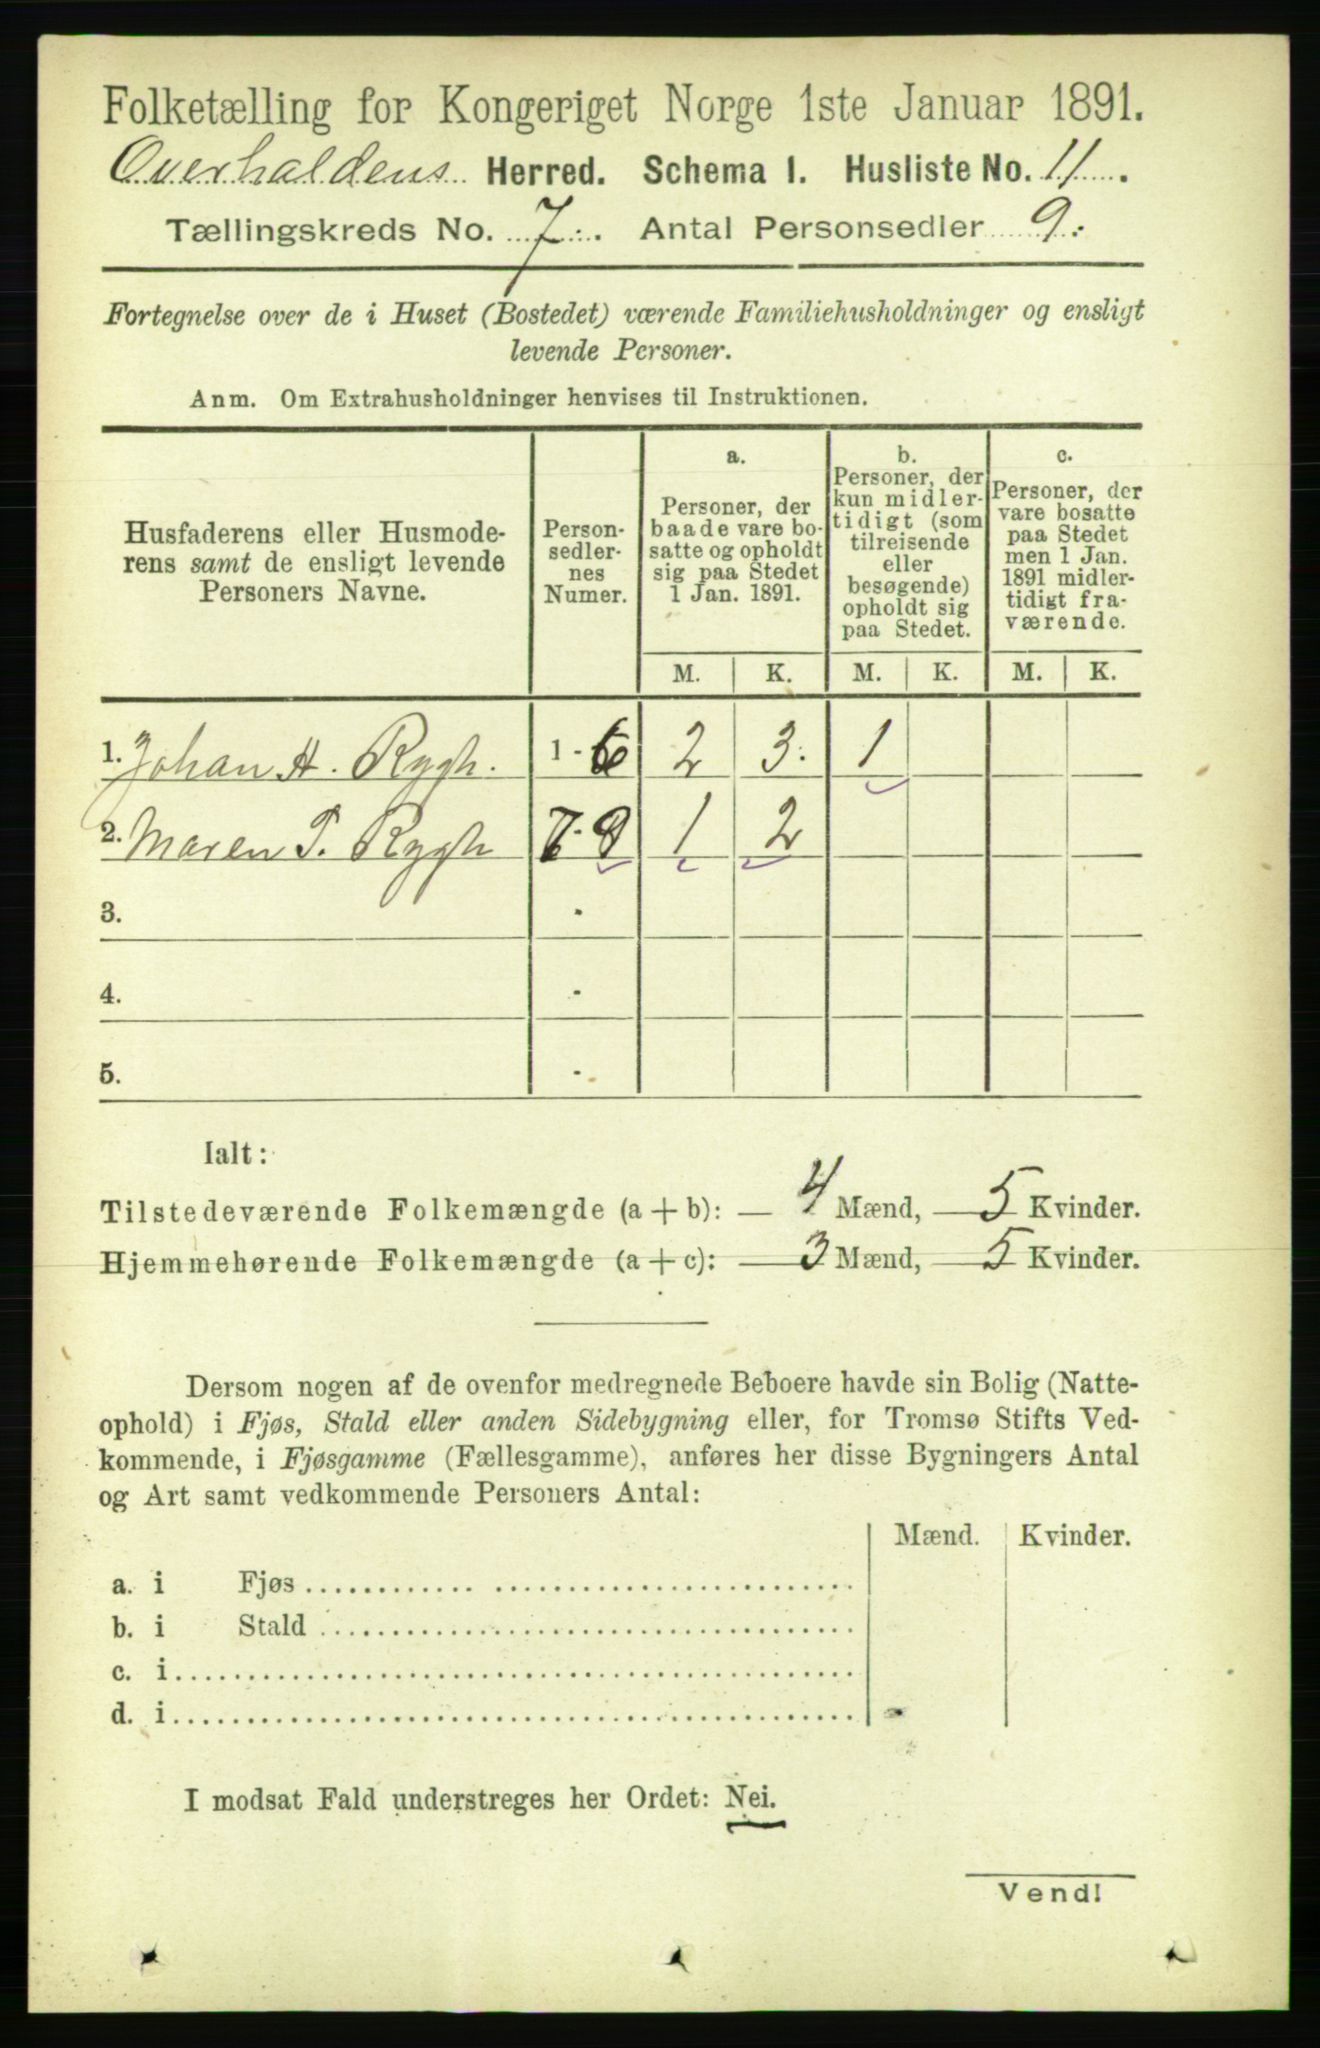 Folketælling for Kongeriget Norge 1ste Januar 1891.
Overhaldens Herred. Schema 1. Husliste No. 11.
Tællingskreds No. 7. Antal Personsedler 9.
Fortegnelse over de i Huset (Bostedet) værende Familiehusholdninger og ensligt
levende Personer.
Anm. Om Extrahusholdninger henvises til Instruktionen.
Husfaderens eller Husmode-
rens samt de ensligt levende
Personers Navne.
Person-
sedler-
nes
Numer.
a.
Personer, der
baade vare bo-
satte og opholdt
sig paa Stedet
1 Jan. 1891.
b.
Personer, der
kun midler-
tidigt (som
tilreisende
eller
besøgende)
opholdt sig
paa Stedet.
c.
Personer, der
vare bosatte
paa Stedet
men 1 Jan.
1891 midler-
tidigt fra-
værende.
M. K. M. K. M. K.
1. Johan A. Rygh. 1 - 6 2 3. 1
2. Maren P. Rygh 7 - 9 1 2
3. -
4. -
5. -
Ialt:
Tilstedeværende Folkemængde (a + b): — 4 Mænd, — 5 Kvinder.
Hjemmehørende Folkemængde (a + c): — 3 Mænd, — 5 Kvinder.
Dersom nogen af de ovenfor medregnede Beboere havde sin Bolig (Natte-
ophold) i Fjøs, Stald eller anden Sidebygning eller, for Tromsø Stifts Ved-
kommende, i Fjøsgamme (Fællesgamme), anføres her disse Bygningers Antal
og Art samt vedkommende Personers Antal:
Mænd. Kvinder.
a. i Fjøs
b. i Stald
c. i
d. i
I modsat Fald understreges her Ordet: Nei.
Vend!